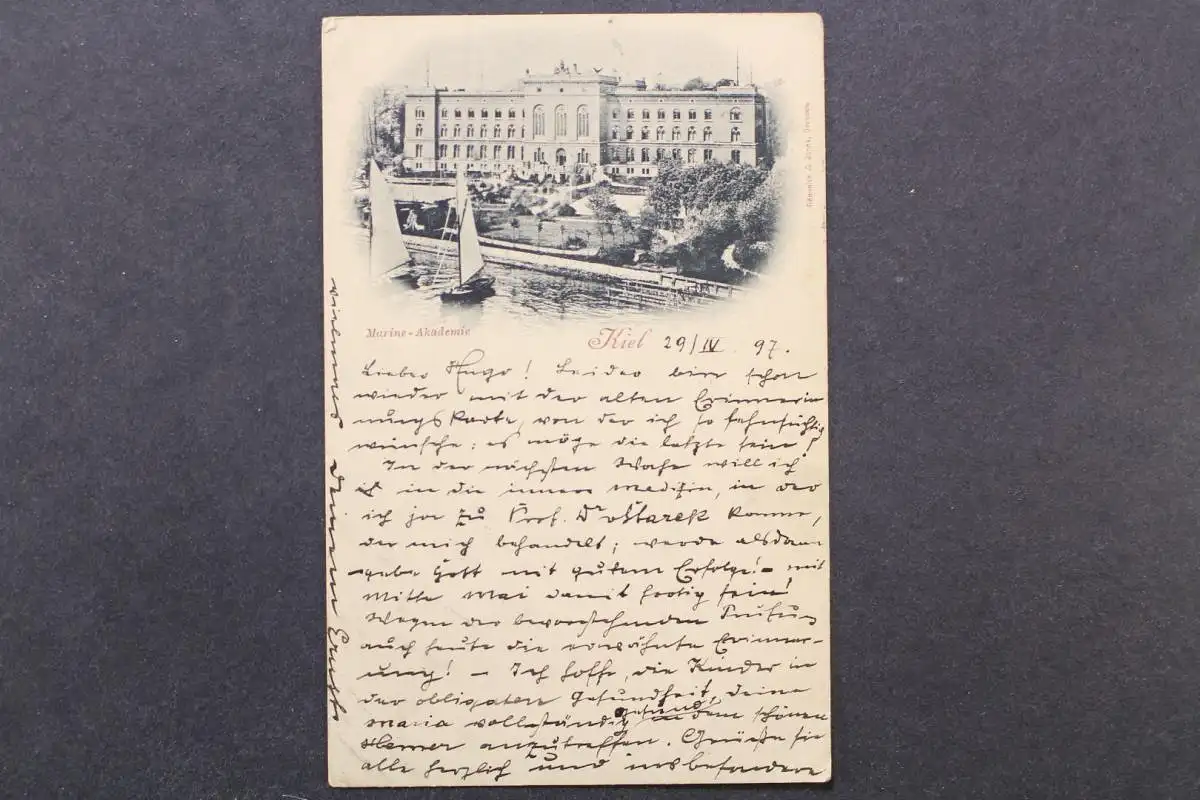 Marine-Akademie
Kiel 29/IV. 97.
Lieber Hugo! Leider bin schon
wieder mit der alten Erinner-
ungskarte, von der ich so sehnsüchtig
wünsche: es möge die letzte sein!
In der nächsten Woche will ich
in die innere Medizin, in der
ich ja zu Prof. Dr komme,
der mich behandelt; werde alsdann
gebe Gott mit gutem Erfolge! – mit
Mitte Mai damit fertig sein!
Wegen der bevorstehenden Prüfung
auch heute die erwähnte Erinner-
ung! – Ich hoffe, die Kinder in
der obligaten Gesundheit, Deine
Maria vollständig gesund in dem schönen
anzutreffen. Grüße sie
alle herzlich und insbesondere
Deinem